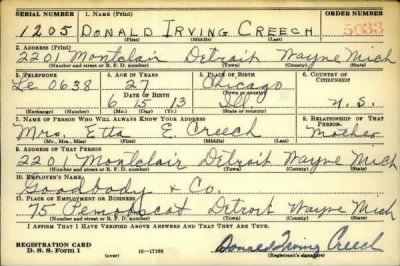 SERIAL NUMBER 1. NAME (Print) ORDER NUMBER
1205 DONALD IRVING CREECH 5033
(First) (Middle) (Last)
2. ADDRESS (Print)
2201 Montclair Detroit Wayne Mich
(Number and street or R. F. D. number) (Town) (County) (State)
3. TELEPHONE 4. AGE IN YEARS 5. PLACE OF BIRTH 6. COUNTRY OF CITIZENSHIP
Le 0638 27 Chicago
DATE OF BIRTH (Town or county)
6 15 13 Ill U.S.
(Exchange) (Number) (Mo.) (Day) (Yr.) (State or country)
7. NAME OF PERSON WHO WILL ALWAYS KNOW YOUR ADDRESS 8. RELATIONSHIP OF THAT PERSON
Mrs. Etta E Creech Mother
(Mr., Mrs., Miss) (First) (Middle) (Last)
9. ADDRESS OF THAT PERSON
2201 Montclair Detroit Wayne Mich
(Number and street or R. F. D. number) (Town) (County) (State)
10. EMPLOYER'S NAME
Goodbody & Co.
11. PLACE OF EMPLOYMENT OR BUSINESS
75 Penobscot Detroit Wayne Mich
(Number and street or R. F. D. number) (Town) (County) (State)
I AFFIRM THAT I HAVE VERIFIED ABOVE ANSWERS AND THAT THEY ARE TRUE.
REGISTRATION CARD
D. S. S. Form 1 (over) 16-17105 Donald Irving Creech
(Registrant's signature)